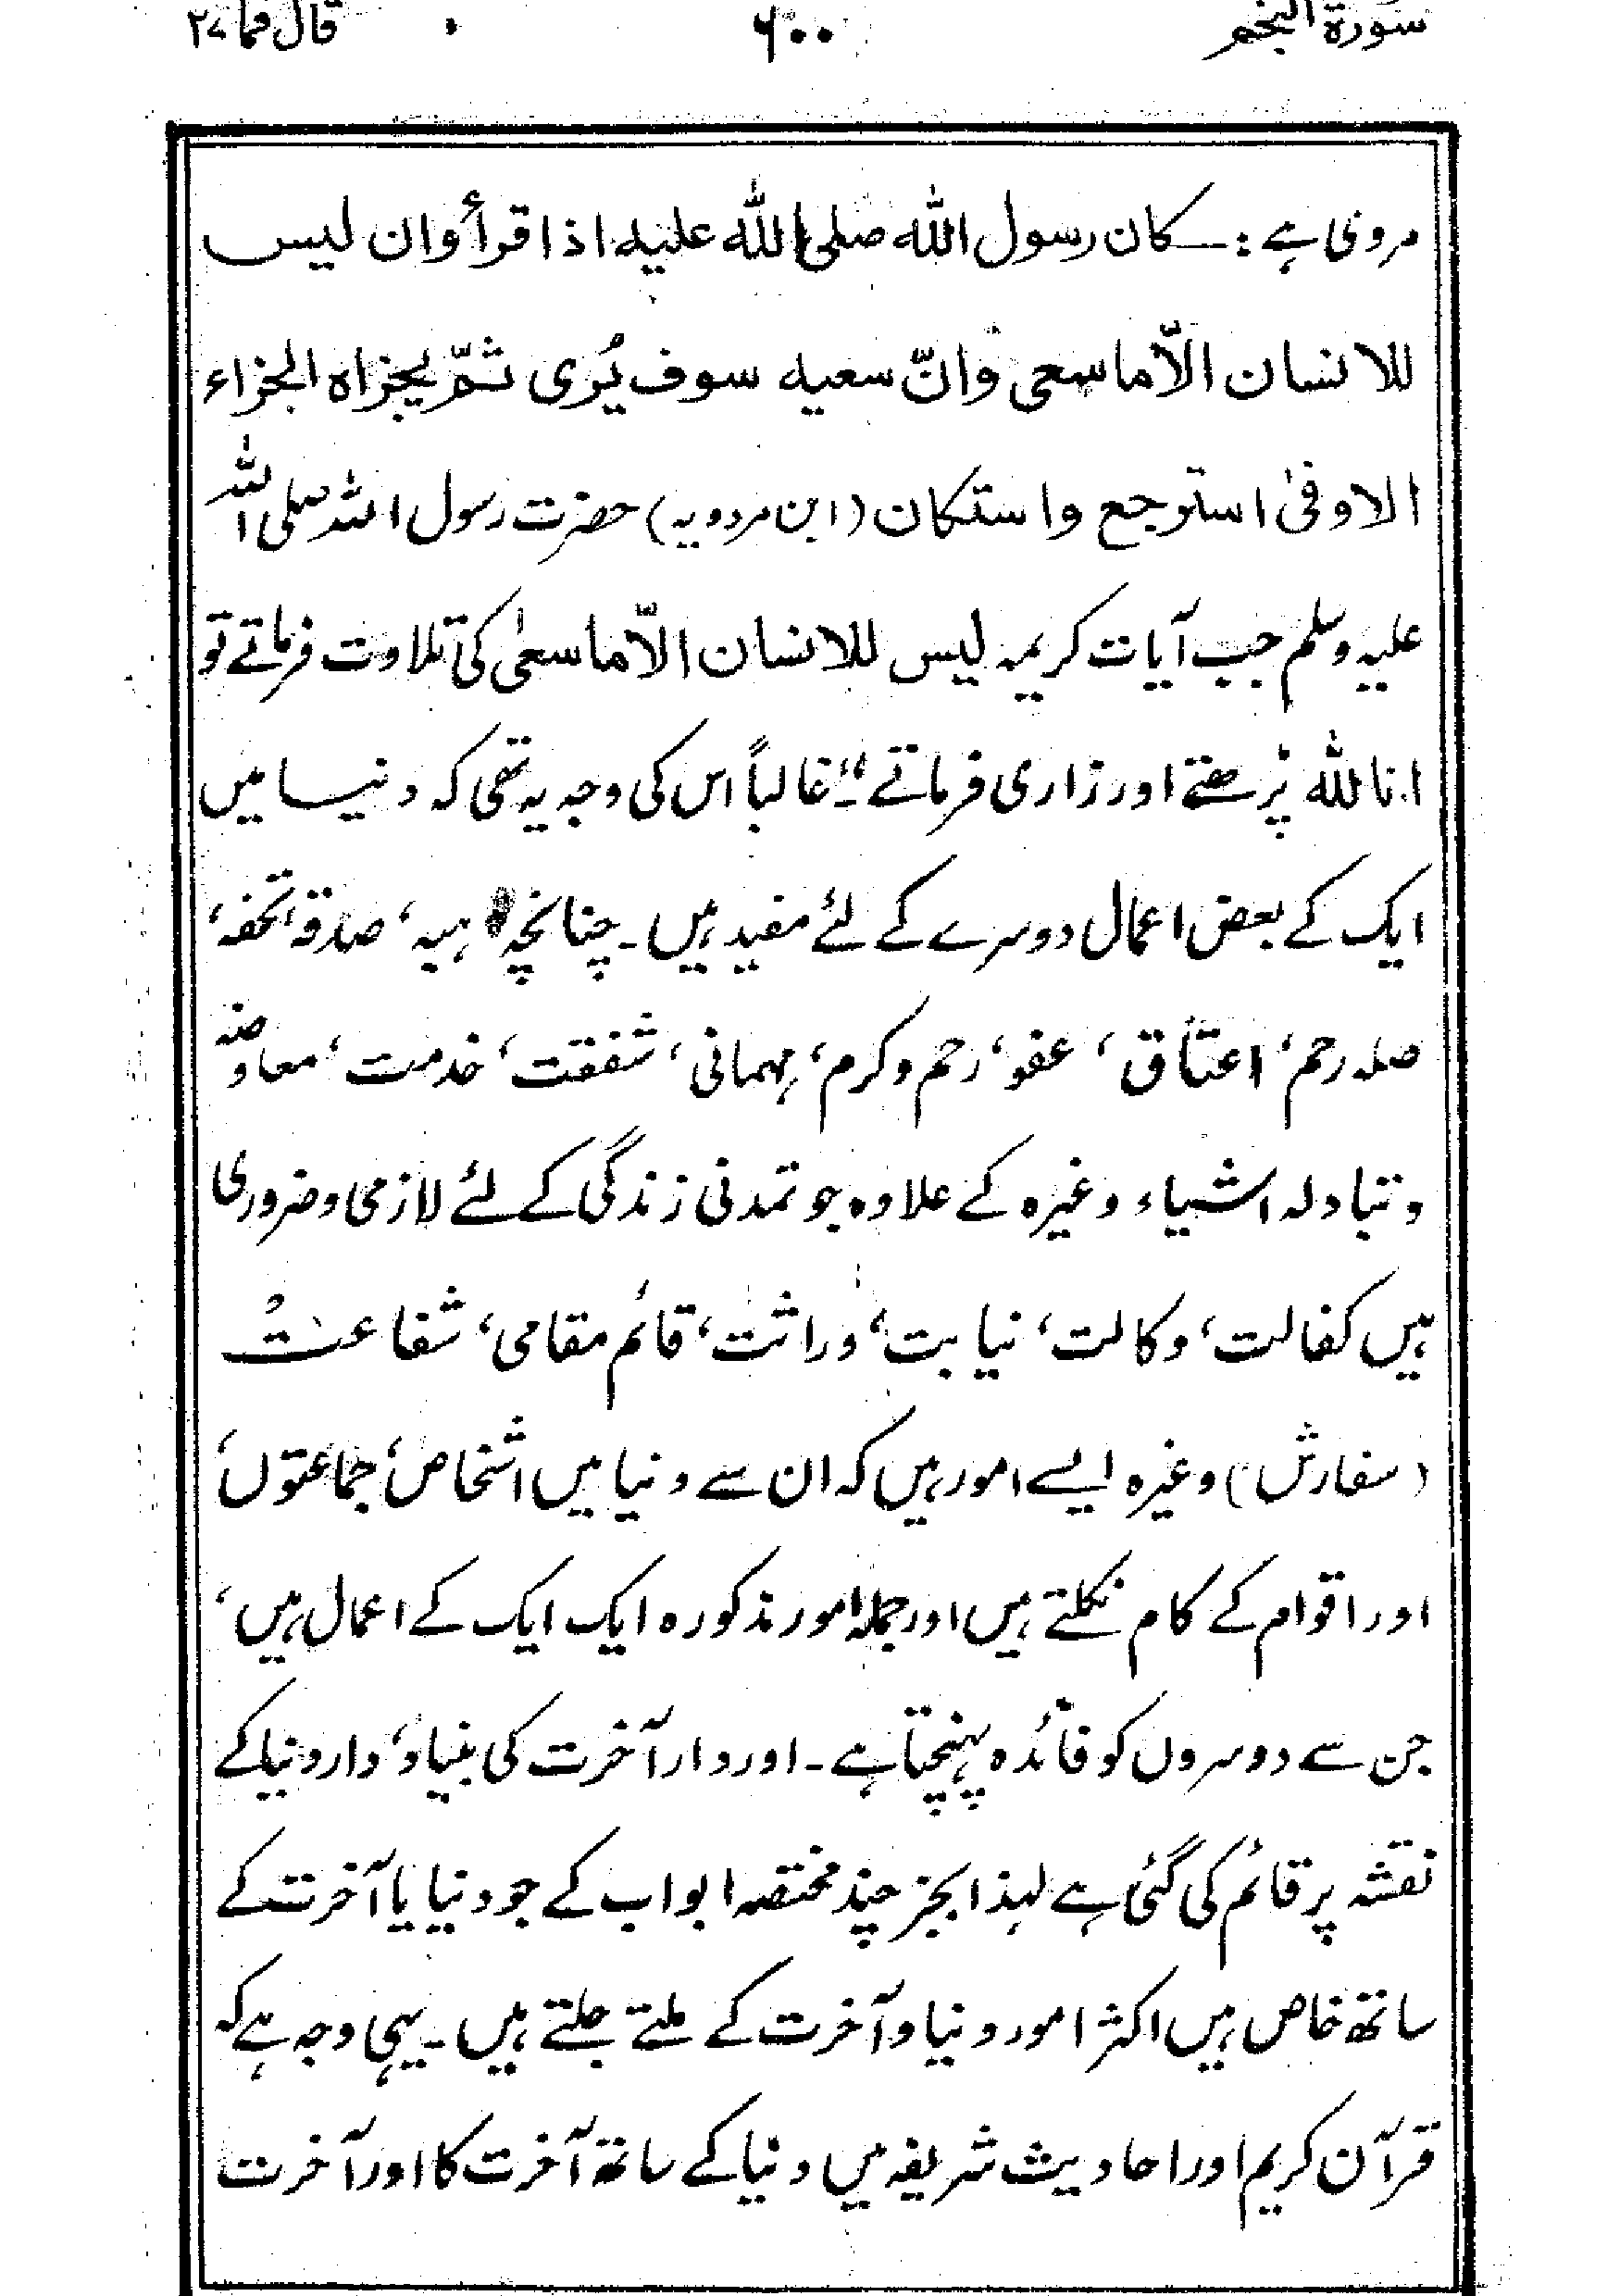 سورۃ النجم ۶۰۰ قال فما ۲۷
مروی ہے: کان رسول اللہ صلی اللہ علیہ اذا قرأ وان لیس
للانسان الاّ ما سعی وانّ سعیہ سوف یُری ثمّ یجزاہ الجزاء
الاوفیٰ استرجع واستکان (ابن مردویہ) حضرت رسول اللہ صلی اللہ
علیہ وسلم جب آیات کریمہ لیس للانسان الاّ ما سعیٰ کی تلاوت فرماتے تو
انا للہ پڑھتے اور زاری فرماتے“۔ غالباً اس کی وجہ یہ تھی کہ دنیا میں
ایک کے بعض اعمال دوسرے کے لئے مفید ہیں۔ چنانچہ ہبہ، صدقہ، تحفہ،
صلہ رحم، اعتاق، عفو، رحم و کرم، مہمانی، شفقت، خدمت، معاوضہ
و تبادلہ اشیاء وغیرہ کے علاوہ جو تمدنی زندگی کے لئے لازمی و ضروری
ہیں کفالت، وکالت، نیابت، وراثت، قائم مقامی، شفاعت
(سفارش) وغیرہ ایسے امور ہیں کہ ان سے دنیا میں اشخاص، جماعتوں،
اور اقوام کے کام نکلتے ہیں اور جملہ امور مذکورہ ایک ایک کے اعمال ہیں،
جن سے دوسروں کو فائدہ پہنچتا ہے۔ اور دار آخرت کی بنیاد، دار دنیا کے
نقشہ پر قائم کی گئی ہے لہذا بجز چند مختصہ ابواب کے جو دنیا یا آخرت کے
ساتھ خاص ہیں اکثر امور دنیا و آخرت کے ملتے جلتے ہیں۔ یہی وجہ ہے کہ
قرآن کریم اور احادیث شریفہ میں دنیا کے ساتھ آخرت کا اور آخرت